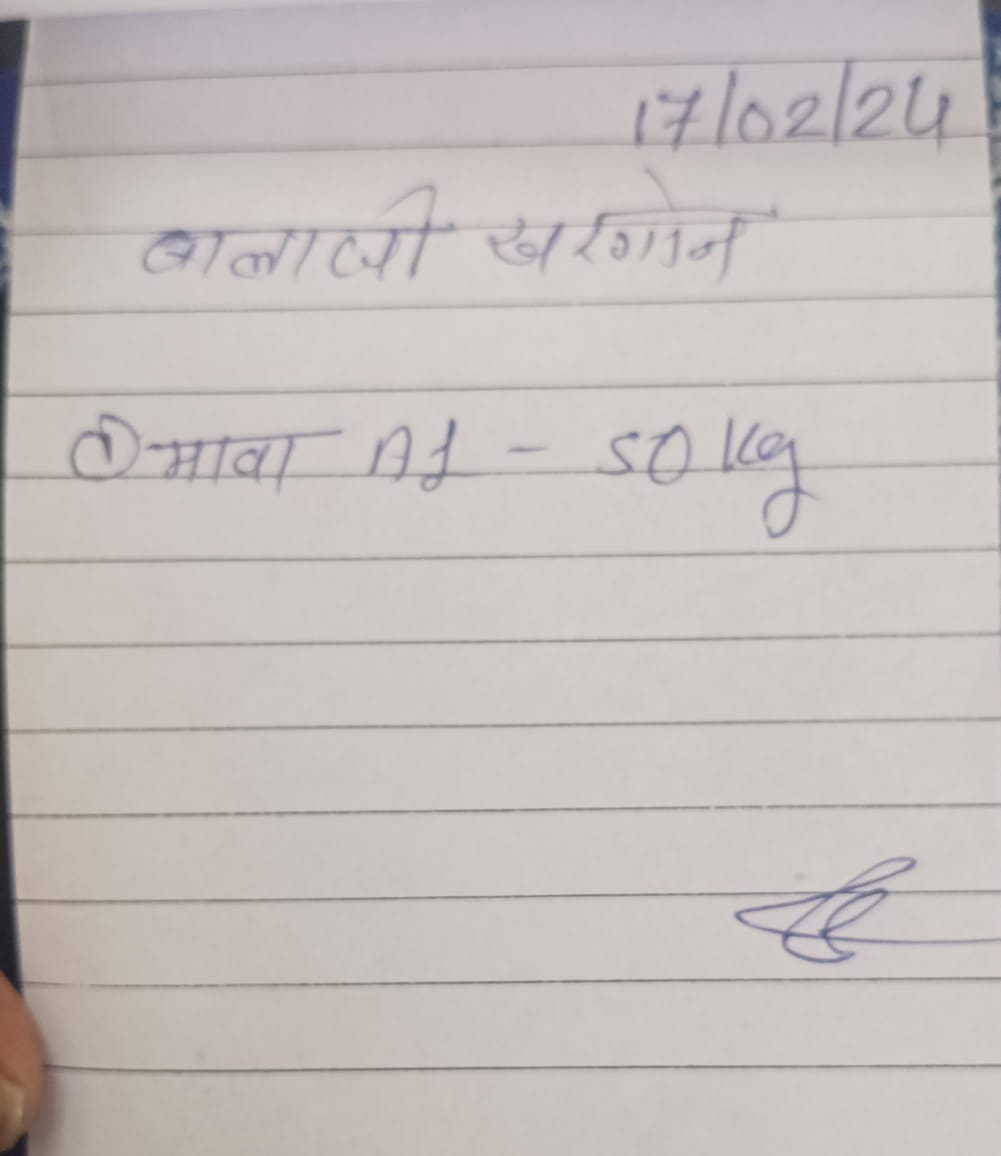 17/02/24
बालाजी खरगोन
① मावा A1 - 50 kg